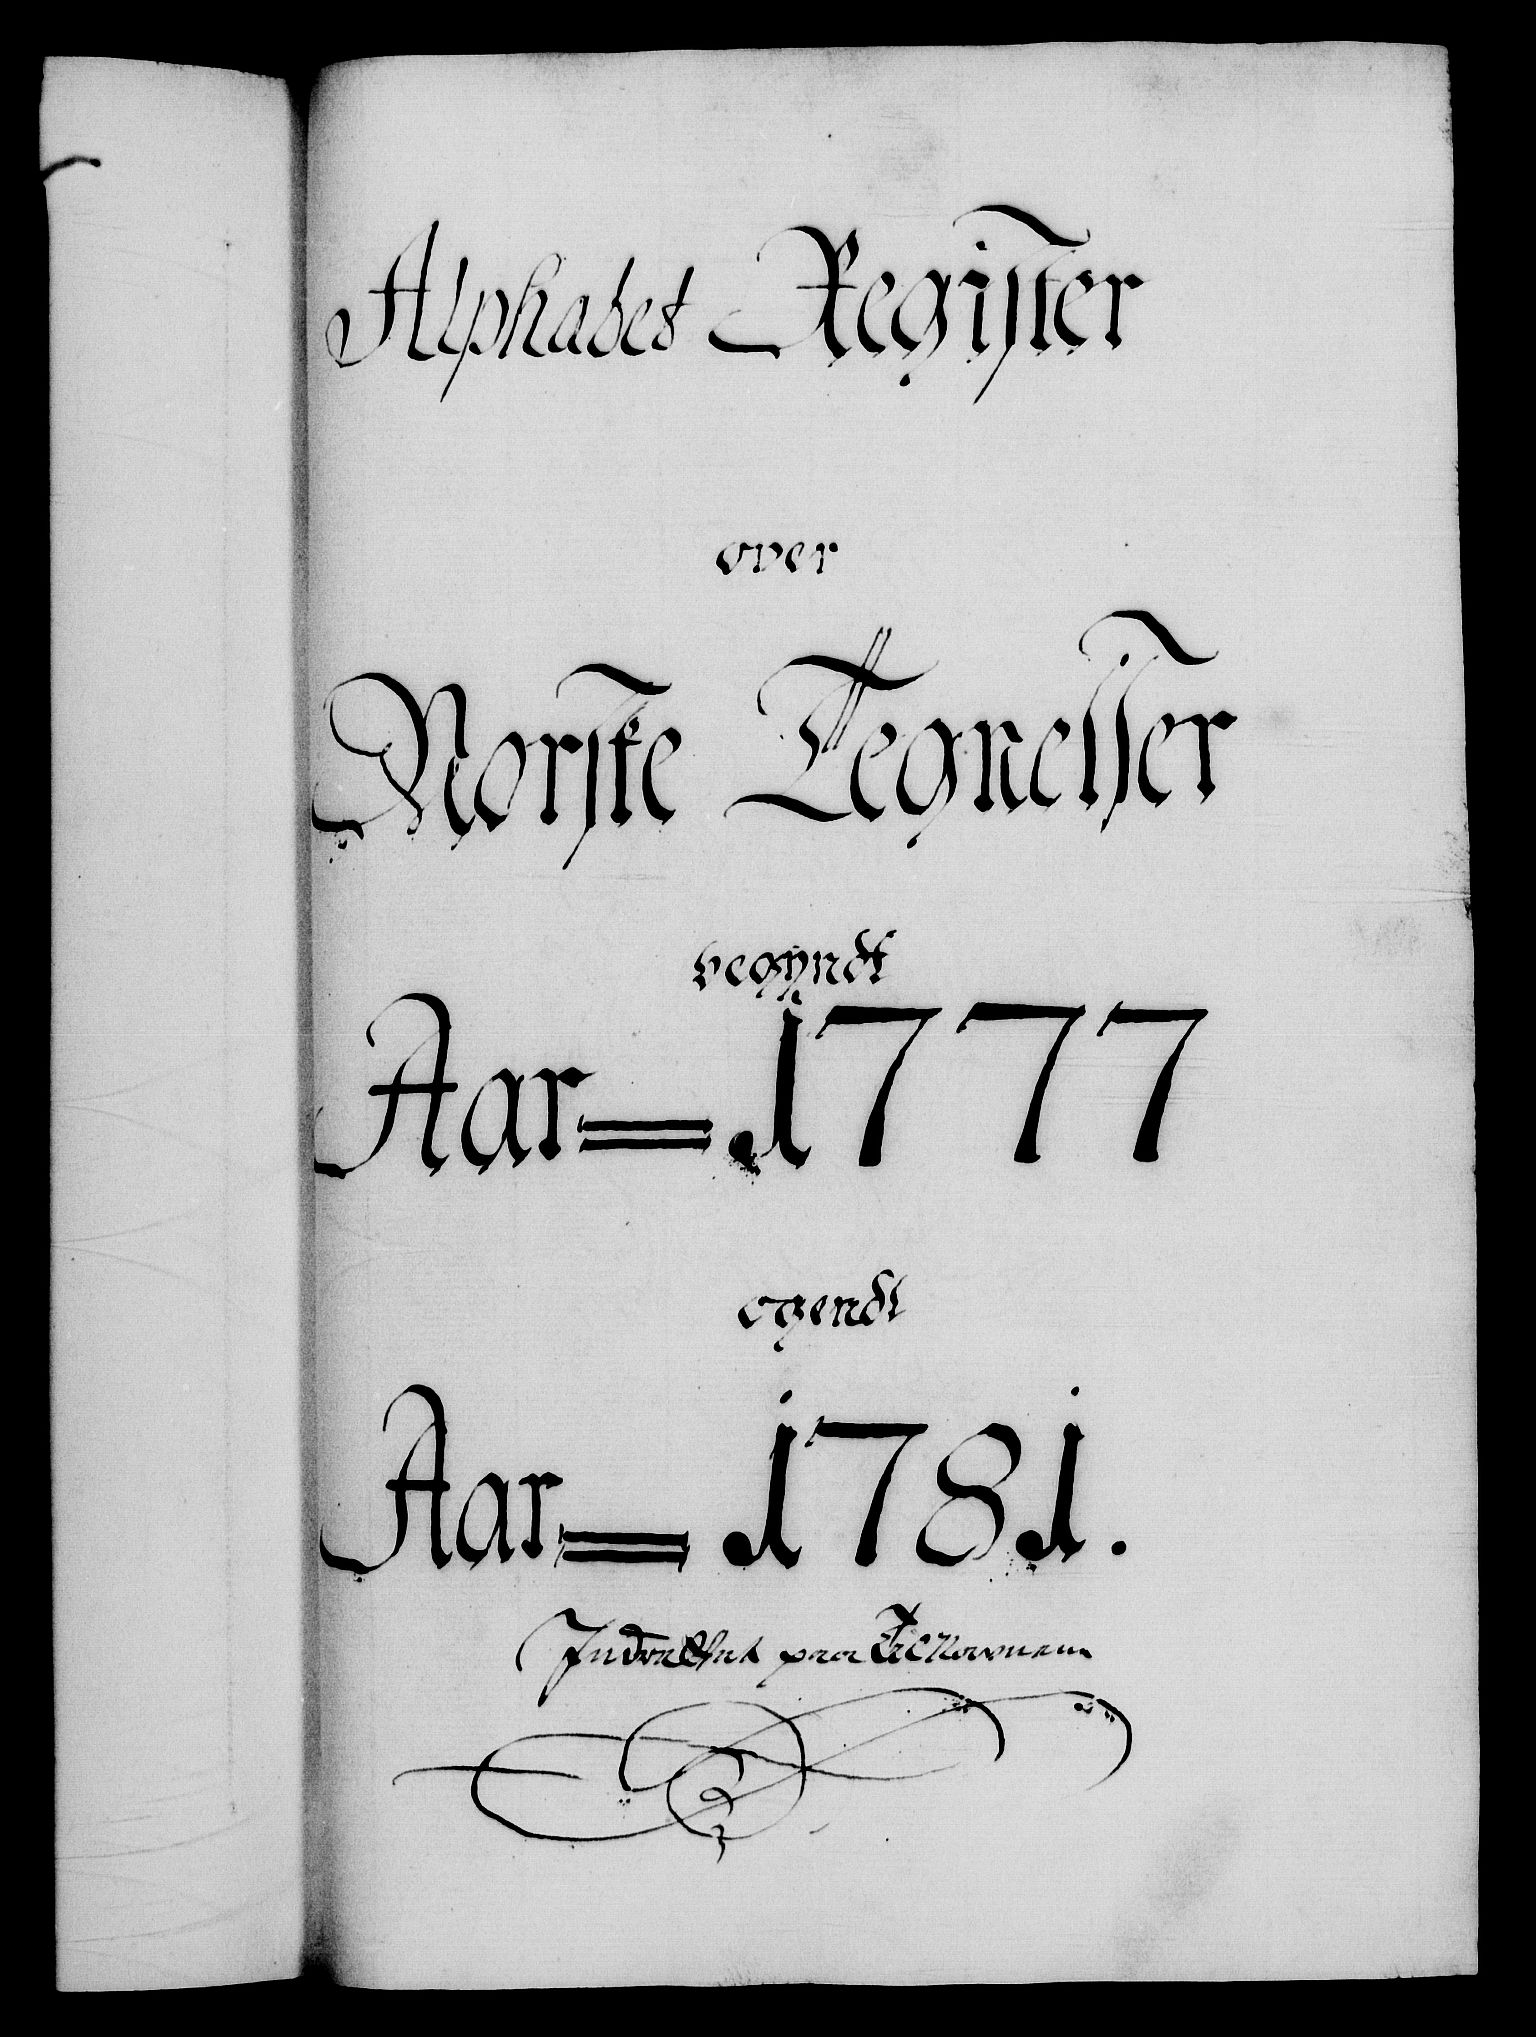 Alphabet Register
over
Norske Tegnelser
begyndt
Aar = 1777
og endt
Aar = 1781.
paa